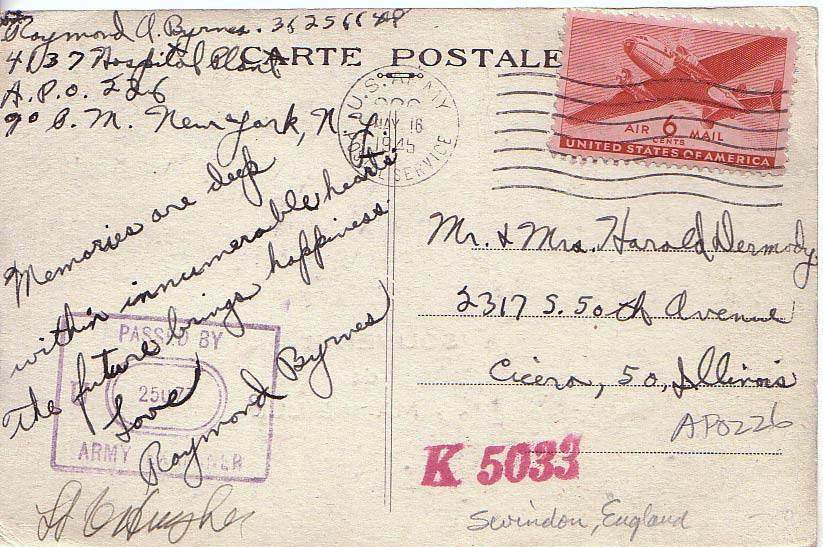 Raymond A. Byrnes. 36256648
4137 Hospital Plant
A.P.O. 226
℅ P.M. New York, N.Y.
CARTE POSTALE
U.S. ARMY
MAY 16
1945
POSTAL SERVICE
AIR 6 MAIL
CENTS
UNITED STATES OF AMERICA
Memories are deep
within innumerable hearts
The future brings happiness.
Love
Raymond Byrnes
PASSED BY
ARMY
Lt C Hughes
Mr. & Mrs. Harold Dermody.
2317 S. 50th Avenue
Cicero, 50, Illinois
APO226
K 5033
Swindon, England